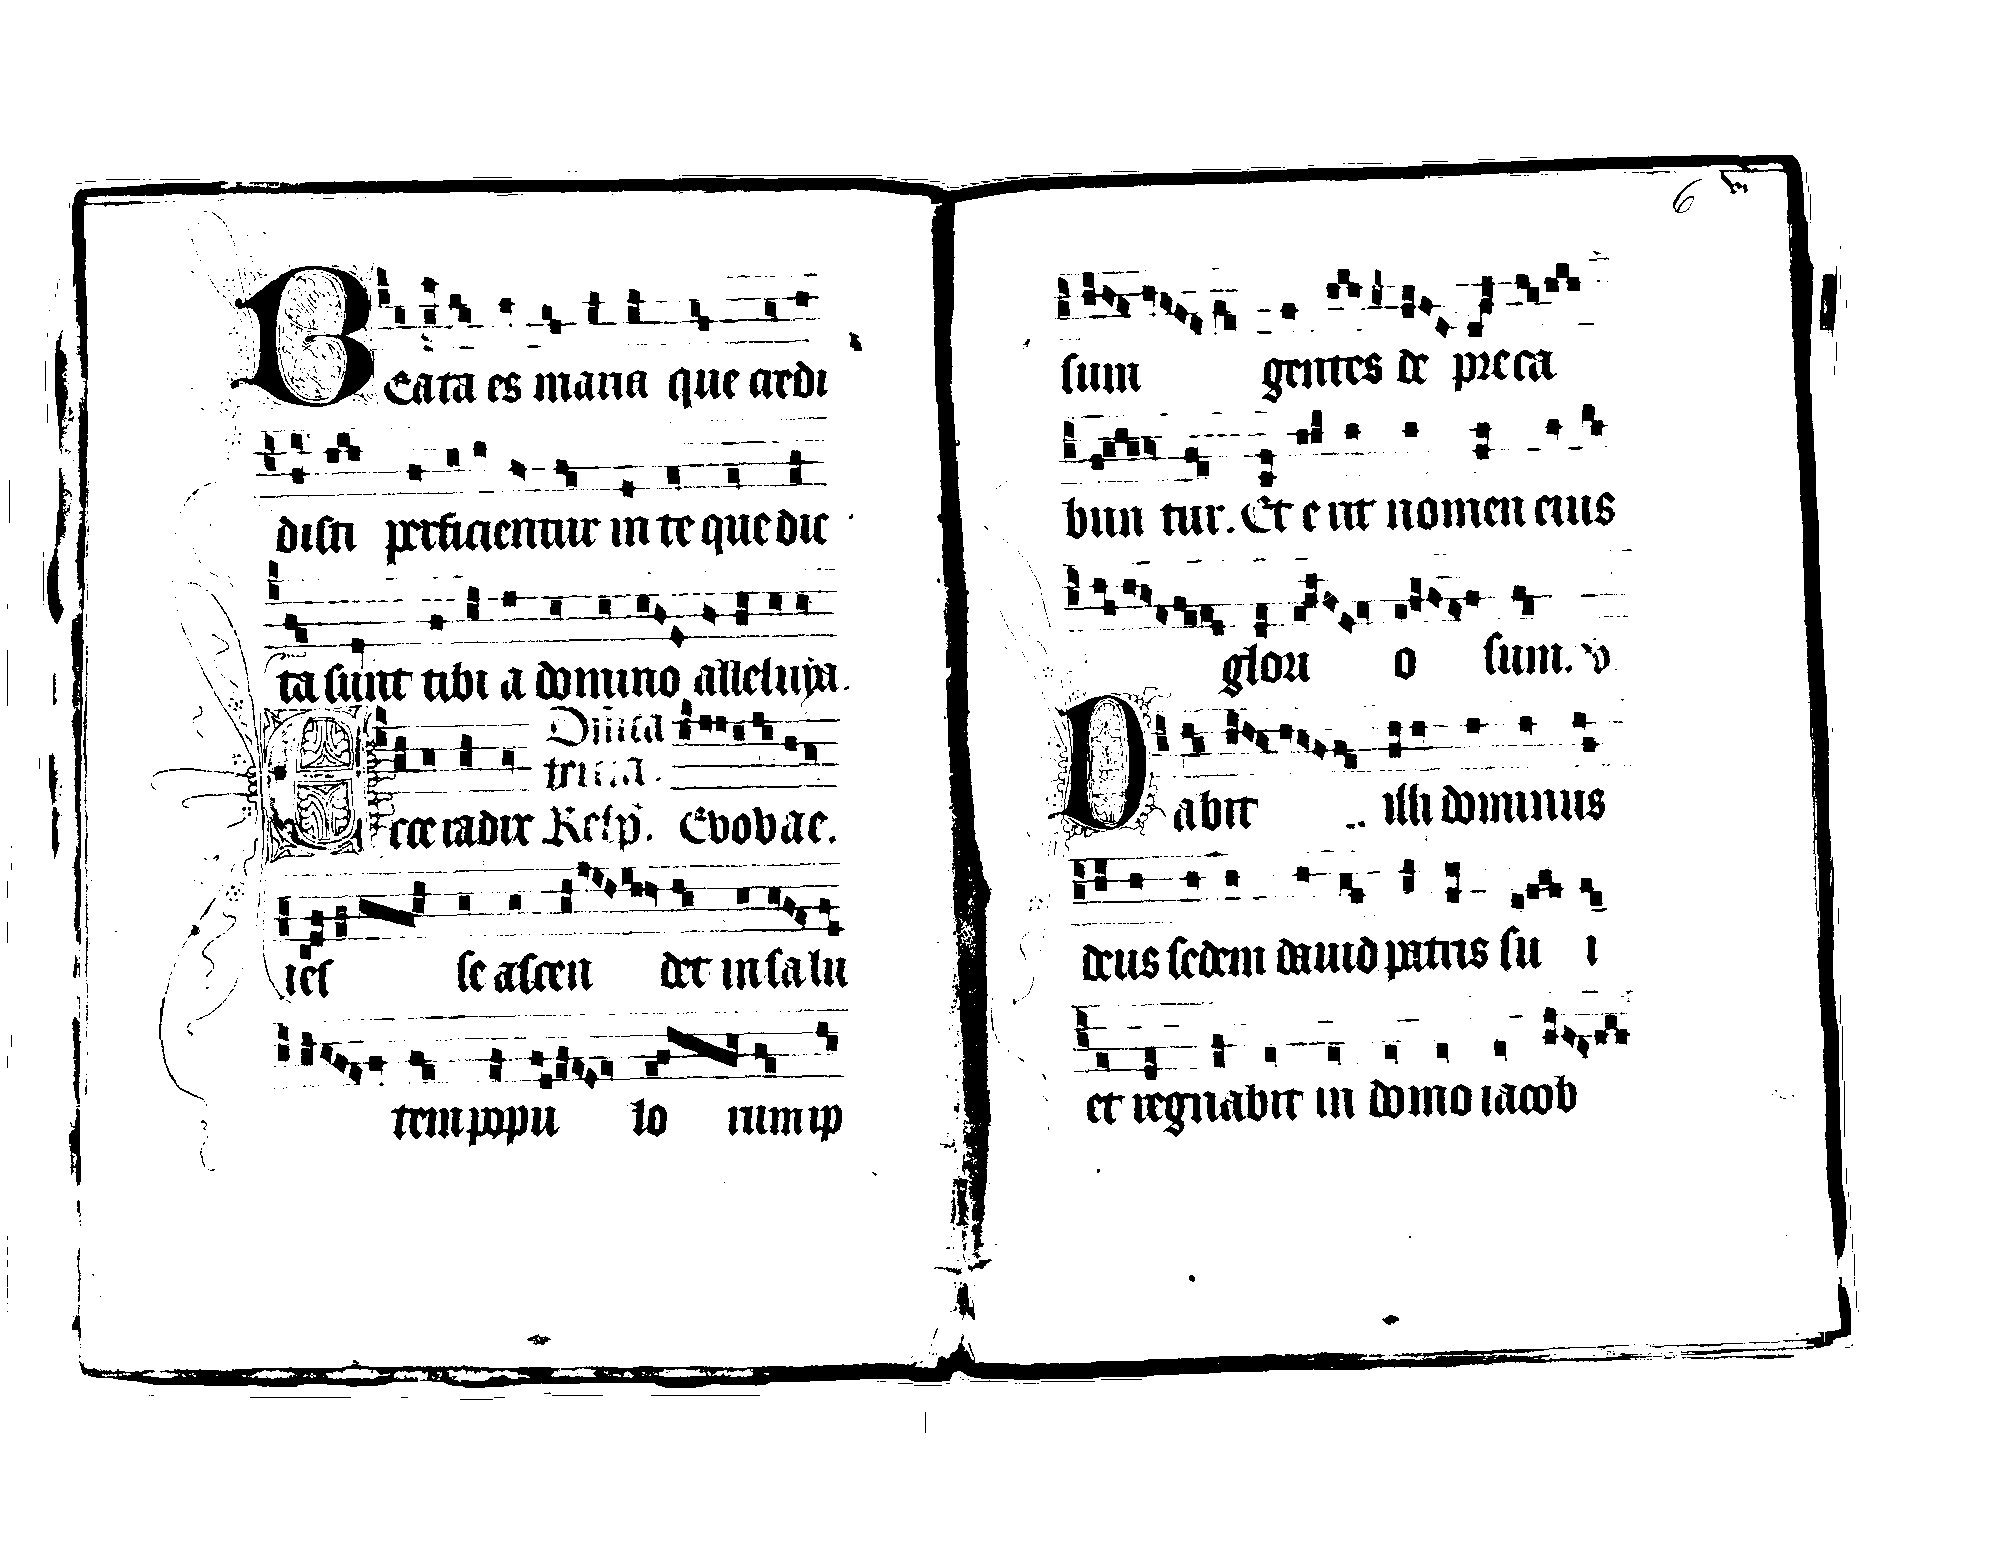 Beata es maria que credi
disti perficientur in te que dic
ta sunt tibi a domino alleluya.
Dñica
tercia.
Ecce radix Resp̄. Evovae.
ies se ascen det in salu
tem popu lo rum ip
6
sum gentes de preca
bun tur. Et e rit nomen eius
glori o sum. v
Dabit illi dominus
deus sedem dauid patris su i
et regnabit in domo iacob